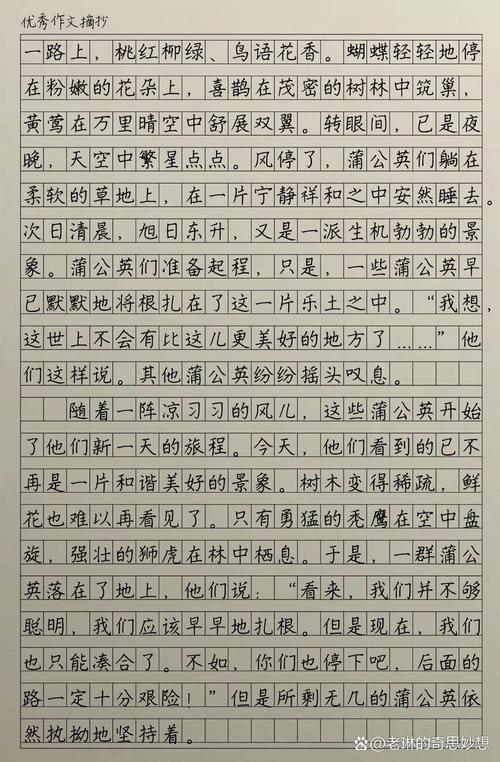 优秀作文摘抄
一路上，桃红柳绿、鸟语花香。蝴蝶轻轻地停
在粉嫩的花朵上，喜鹊在茂密的树林中筑巢，
黄莺在万里晴空中舒展双翼。转眼间，已是夜
晚，天空中繁星点点。风停了，蒲公英们躺在
柔软的草地上，在一片宁静祥和之中安然睡去。
次日清晨，旭日东升，又是一派生机勃勃的景
象。蒲公英们准备起程，只是，一些蒲公英早
已默默地将根扎在了这一片乐土之中。“我想，
这世上不会有比这儿更美好的地方了……”他
们这样说。其他蒲公英纷纷摇头叹息。
随着一阵凉习习的风儿，这些蒲公英开始
了他们新一天的旅程。今天，他们看到的已不
再是一片和谐美好的景象。树木变得稀疏，鲜
花也难以再看见了。只有勇猛的秃鹰在空中盘
旋，强壮的狮虎在林中栖息。于是，一群蒲公
英落在了地上，他们说：“看来，我们并不够
聪明，我们应该早早地扎根。但是现在，我们
也只能凑合了。不如，你们也停下吧，后面的
路一定十分艰险！”但是所剩无几的蒲公英依
然执拗地坚持着。
@老琳的奇思妙想